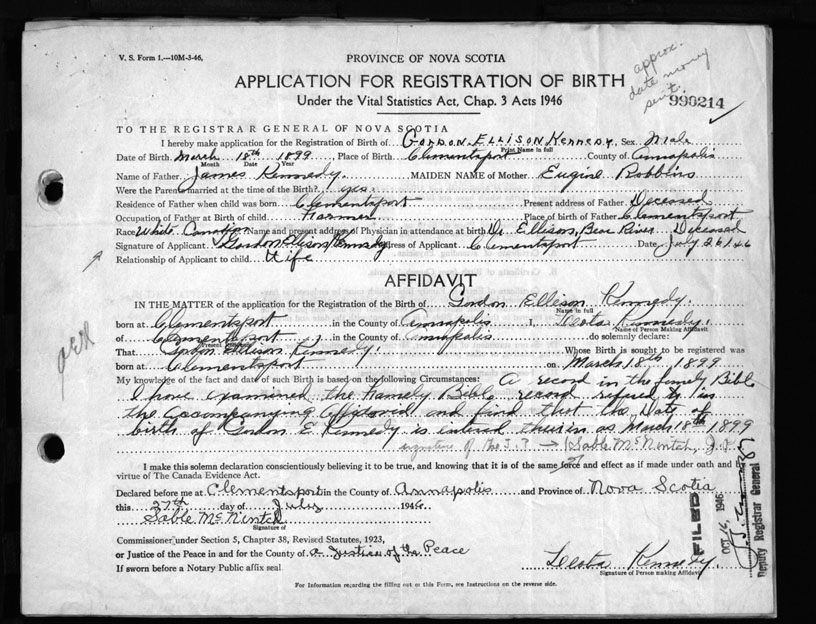 V. S. Form 1.—10M-3-46.
PROVINCE OF NOVA SCOTIA
approx.
date money
sent.
APPLICATION FOR REGISTRATION OF BIRTH
Under the Vital Statistics Act, Chap. 3 Acts 1946
990214
TO THE REGISTRAR GENERAL OF NOVA SCOTIA
I hereby make application for the Registration of Birth of Gordon Ellison Kennedy Sex Male
Print Name in full
Date of Birth March 18th 1899 Place of Birth Clementsport County of Annapolis
Month Date Year
Name of Father James Kennedy. MAIDEN NAME of Mother Eugine Robbins
Were the Parents married at the time of the Birth? yes.
Residence of Father when child was born Clementsport Present address of Father Deceased
Occupation of Father at Birth of child Farmer Place of birth of Father Clementsport
Race White Name and present address of Physician in attendance at birth Dr Ellison, Bear River Deceased
Signature of Applicant Gordon Ellison Kennedy Address of Applicant Clementsport Date July 26/46
Relationship of Applicant to child Wife
AFFIDAVIT
IN THE MATTER of the application for the Registration of the Birth of Gordon Ellison Kennedy.
Name in full
born at Clementsport in the County of Annapolis I, Leota Kennedy.
Name of Person Making Affidavit
of Clementsport in the County of Annapolis do solemnly declare:
That Gordon Ellison Kennedy. Whose Birth is sought to be registered was
born at Clementsport on March 18th 1899
My knowledge of the fact and date of such Birth is based on the following Circumstances: A record in the family Bible
I have examined the Family Bible record refered to in
the accompanying and find that the date of
birth of Gordon E Kennedy is entered therein as March 18th 1899
signature of the J.P → Sable McNintch, J.P
I make this solemn declaration conscientiously believing it to be true, and knowing that it is of the same force and effect as if made under oath and by
virtue of The Canada Evidence Act.
Declared before me at Clementsport in the County of Annapolis and Province of Nova Scotia
this 27th day of July 1946
Sable McNintch
Signature of
Commissioner under Section 5, Chapter 38, Revised Statutes, 1923,
or Justice of the Peace in and for the County of a Justice of the Peace
If sworn before a Notary Public affix seal
Leota Kennedy
Signature of Person making Affidavit
For Information regarding the filling out of this Form, see Instructions on the reverse side.
FILED
OCT 16 1946
Deputy Registrar General